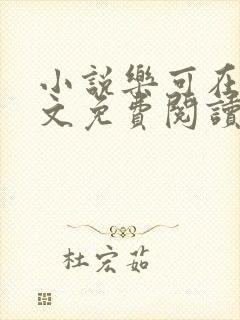 小說樂可在
文免費閱讀
杜宏茹